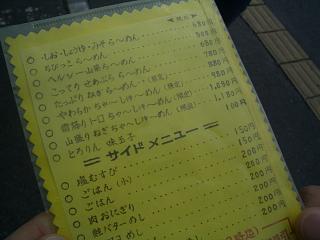 しお・しょうゆ・みそらーめん 680円
ちびっこらーめん 500円
ヘルシー山菜らーめん 680円
こってりせあぶららーめん 780円
たっぷりねぎらーめん(限定) 880円
やわらかちゃーしゅーめん(限定) 980円
霜降りトロちゃーしゅーめん(限定) 1,080円
山盛りねぎちゃーしゅーめん(限定) 1,180円
とろりん味玉子 100円
= サイドメニュー =
塩むすび 150円
ごはん(小) 150円
ごはん 200円
肉おにぎり 250円
鮭バターめし 200円
めし 200円
200円